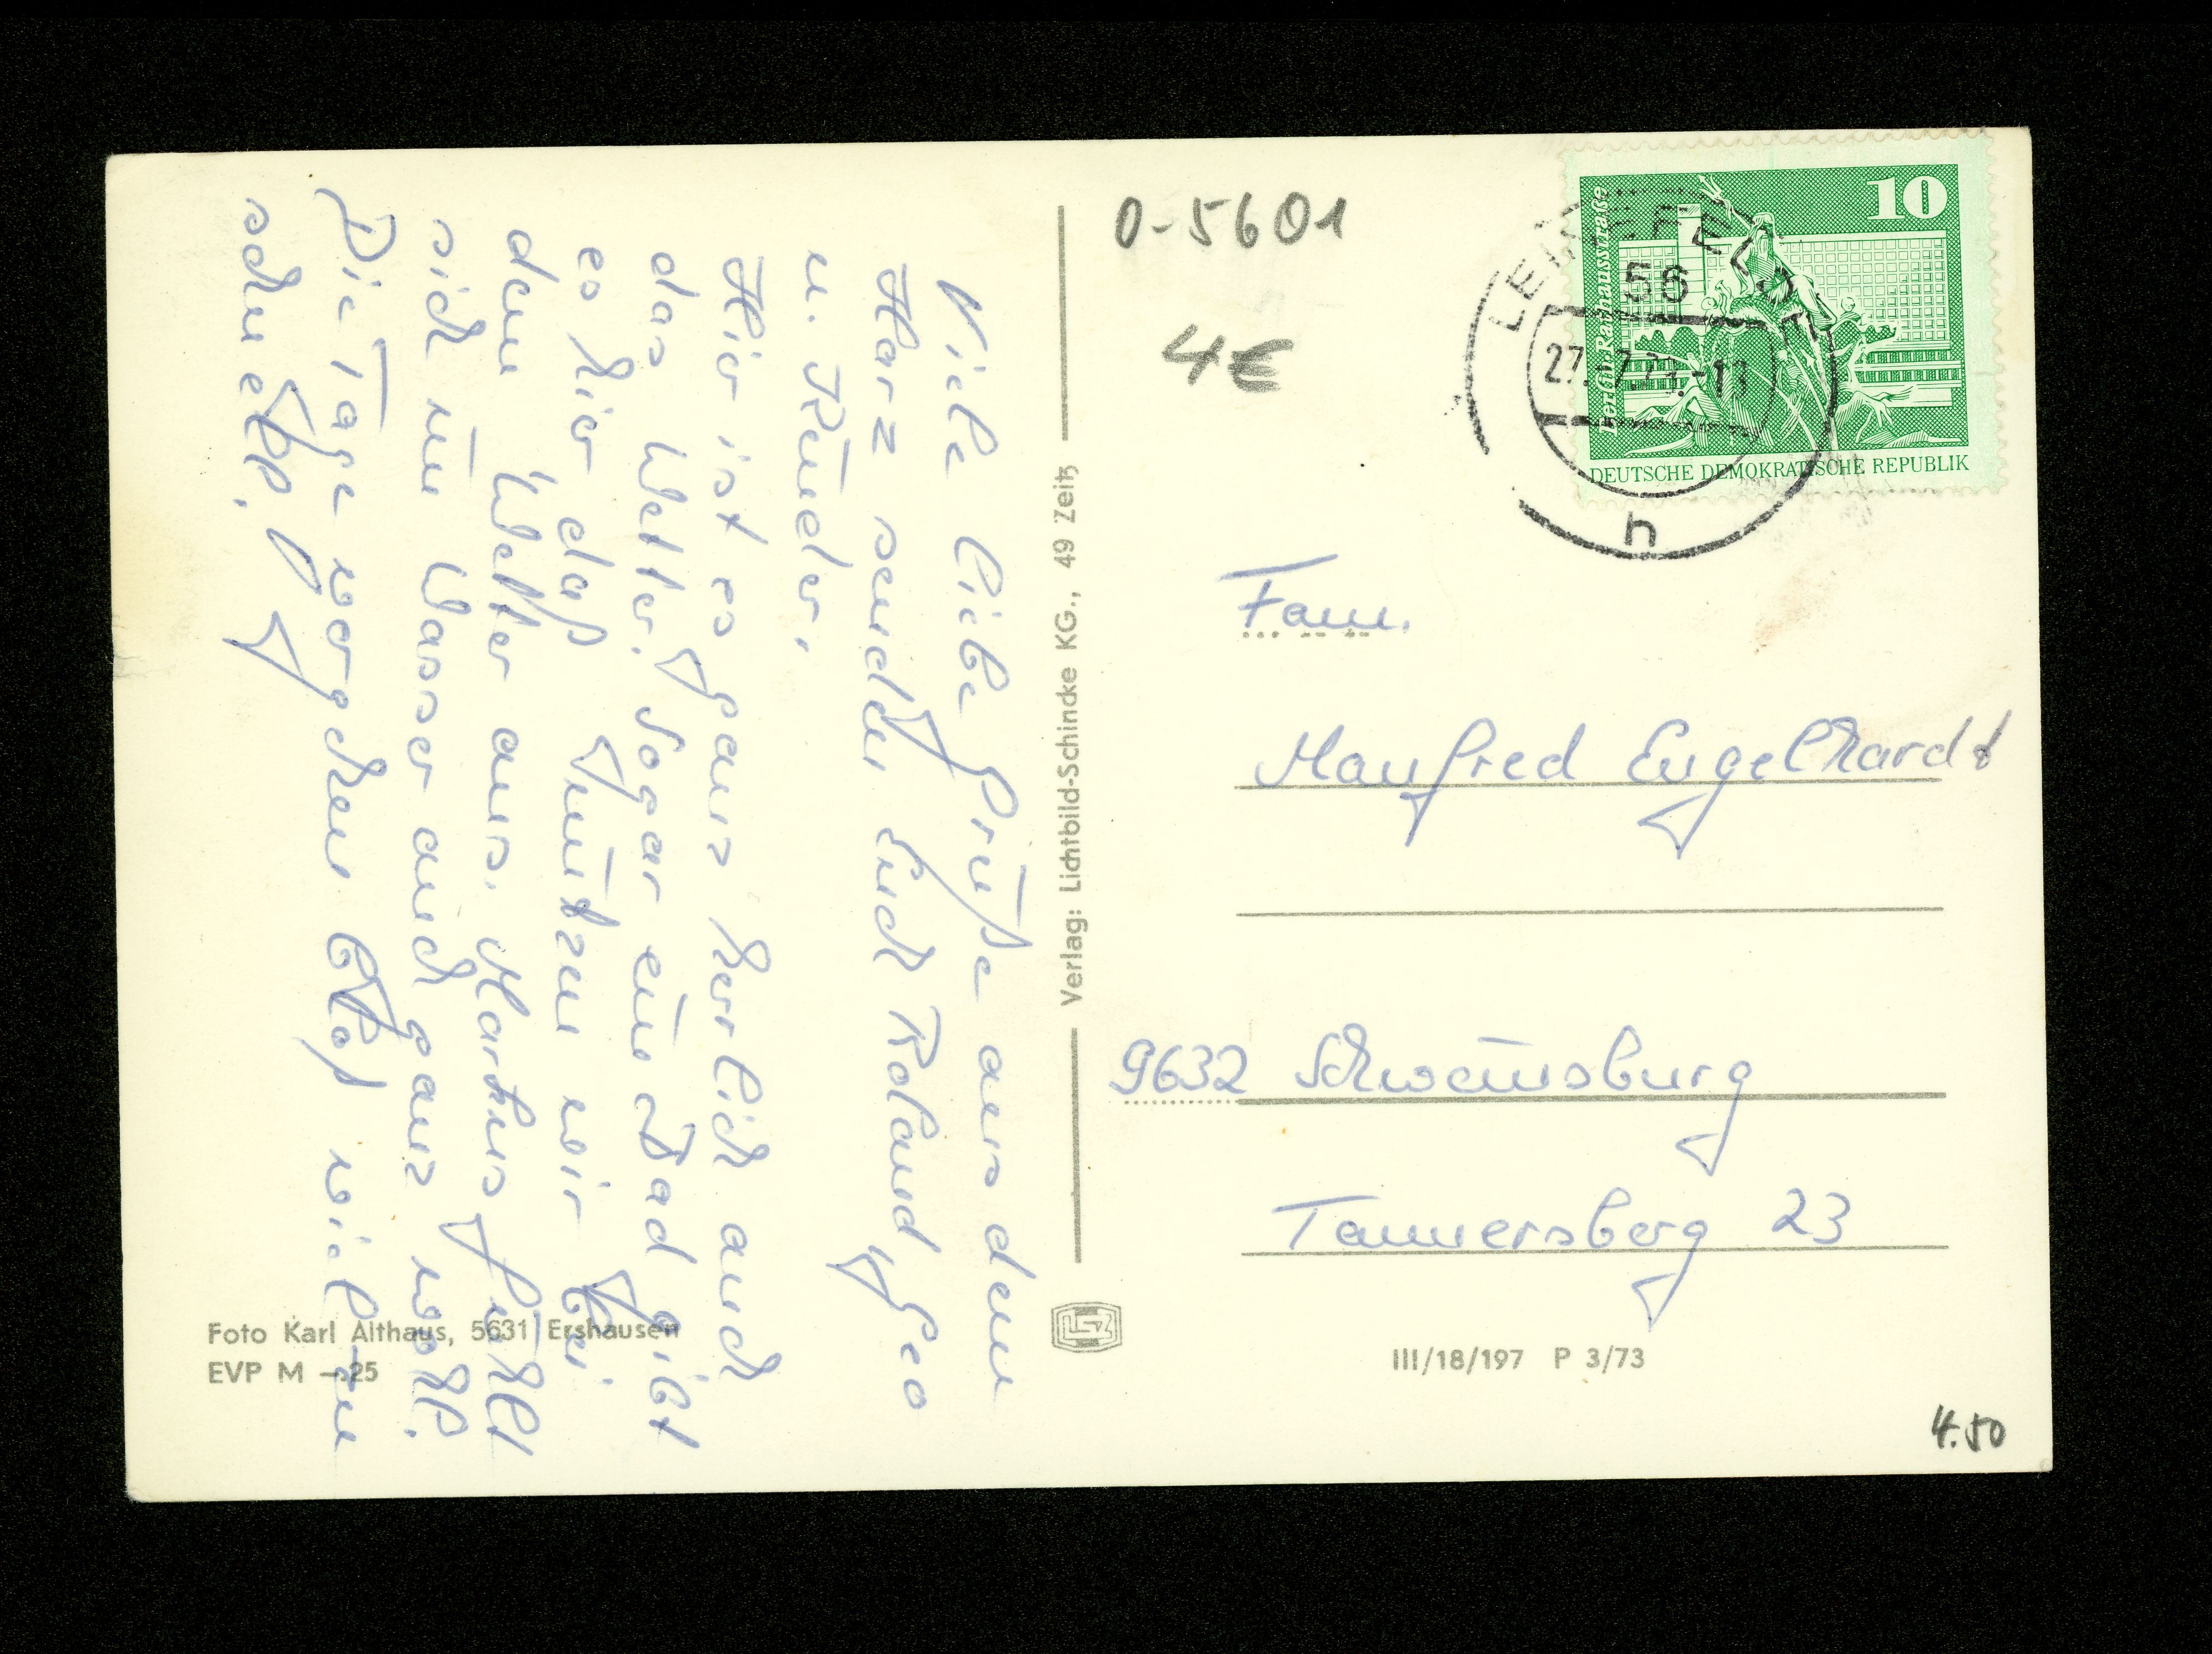 Viele liebe Grüße aus dem
Harz sendet Euch Roland Geo
u. Kinder.
Hier ist es ganz herrlich auch
das Wetter. Sogar ein Bad gibt
es hier das nutzen wir bei
dem Wetter aus. Markus fühlt
sich im Wasser auch ganz wohl.
Die Tage vergehen bloß viel zu
schnell.
Foto Karl Althaus, 5631 Ershausen
EVP M -.25
Verlag: Lichtbild-Schincke KG., 49 Zeitz
0-5601
4€
10
Berlin, Rathausstraße
DEUTSCHE DEMOKRATISCHE REPUBLIK
LEINEFELDE
56
27. 7.73.-13
h
Fam.
Manfred Engelhardt
9632 Schweinsburg
Tannersberg 23
III/18/197 P 3/73
4.50